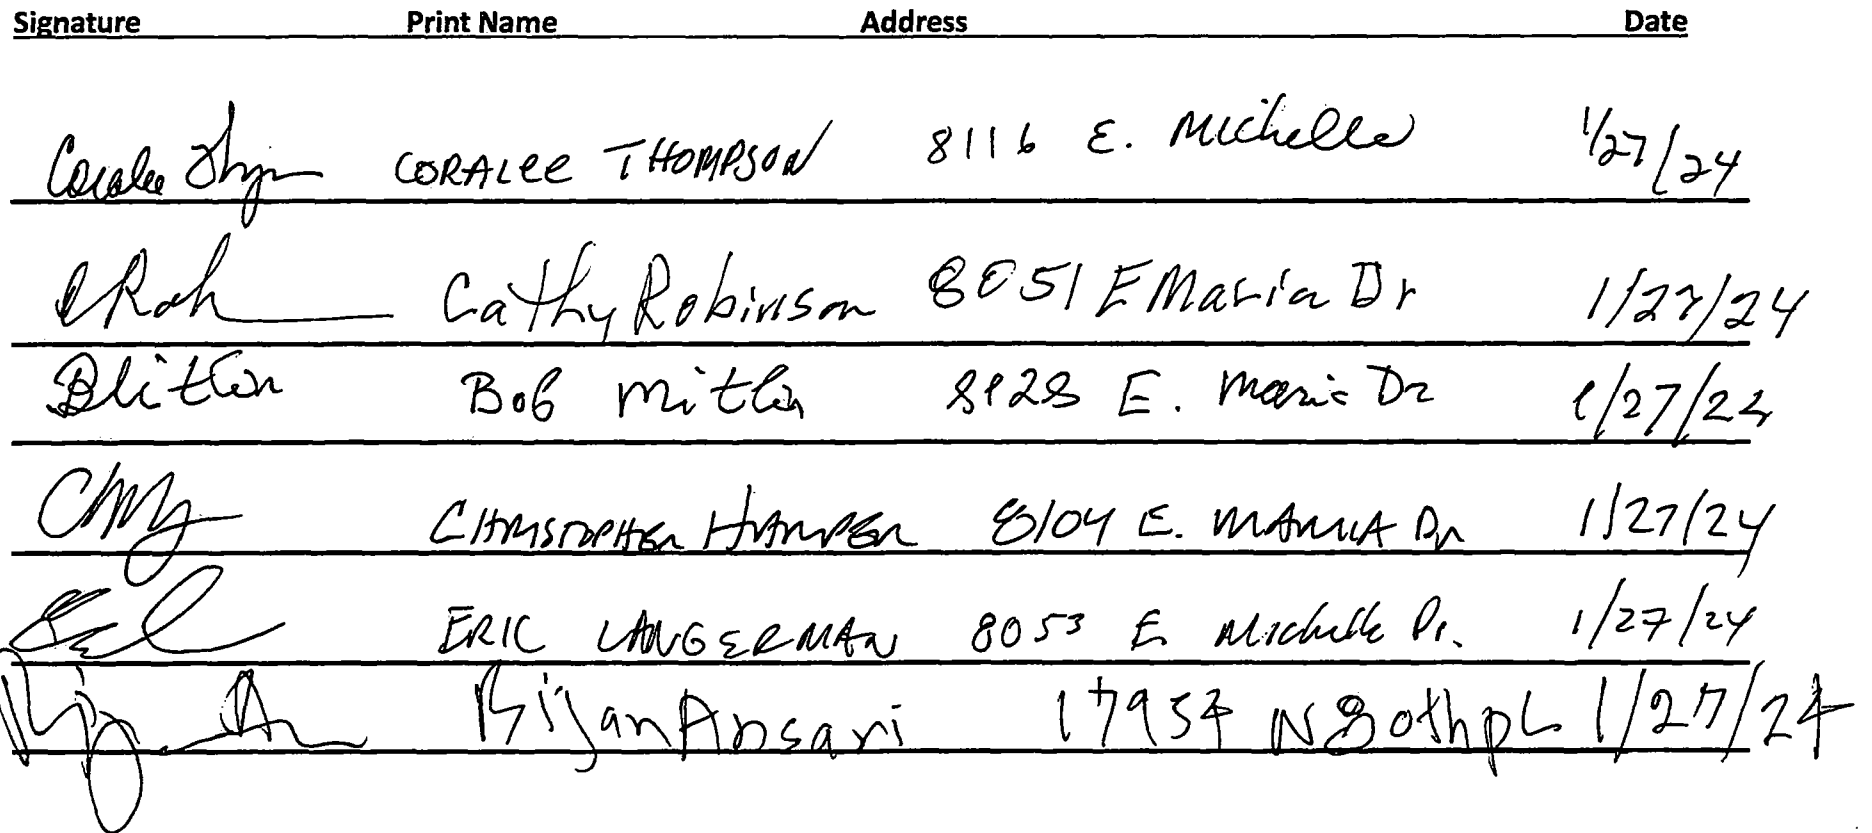 Signature Print Name Address Date
Coralee CORALEE THOMPSON 8116 E. Michelle 1/27/24
Cathy Robinson 8051 E Maria Dr 1/27/24
Bob Mitlin 8128 E. Maria Dr 1/27/24
CHRISTOPHER HAMPER 8104 E. MARIA Dr 1/27/24
ERIC LANGERMAN 8053 E Michelle Dr. 1/27/24
Bijan Ansari 17954 N 80th pL 1/27/24